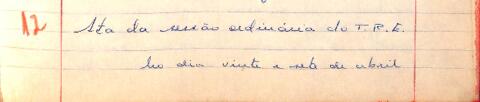 12 Ata da sessão ordinária do T.R.E.
no dia vinte e sete de abril